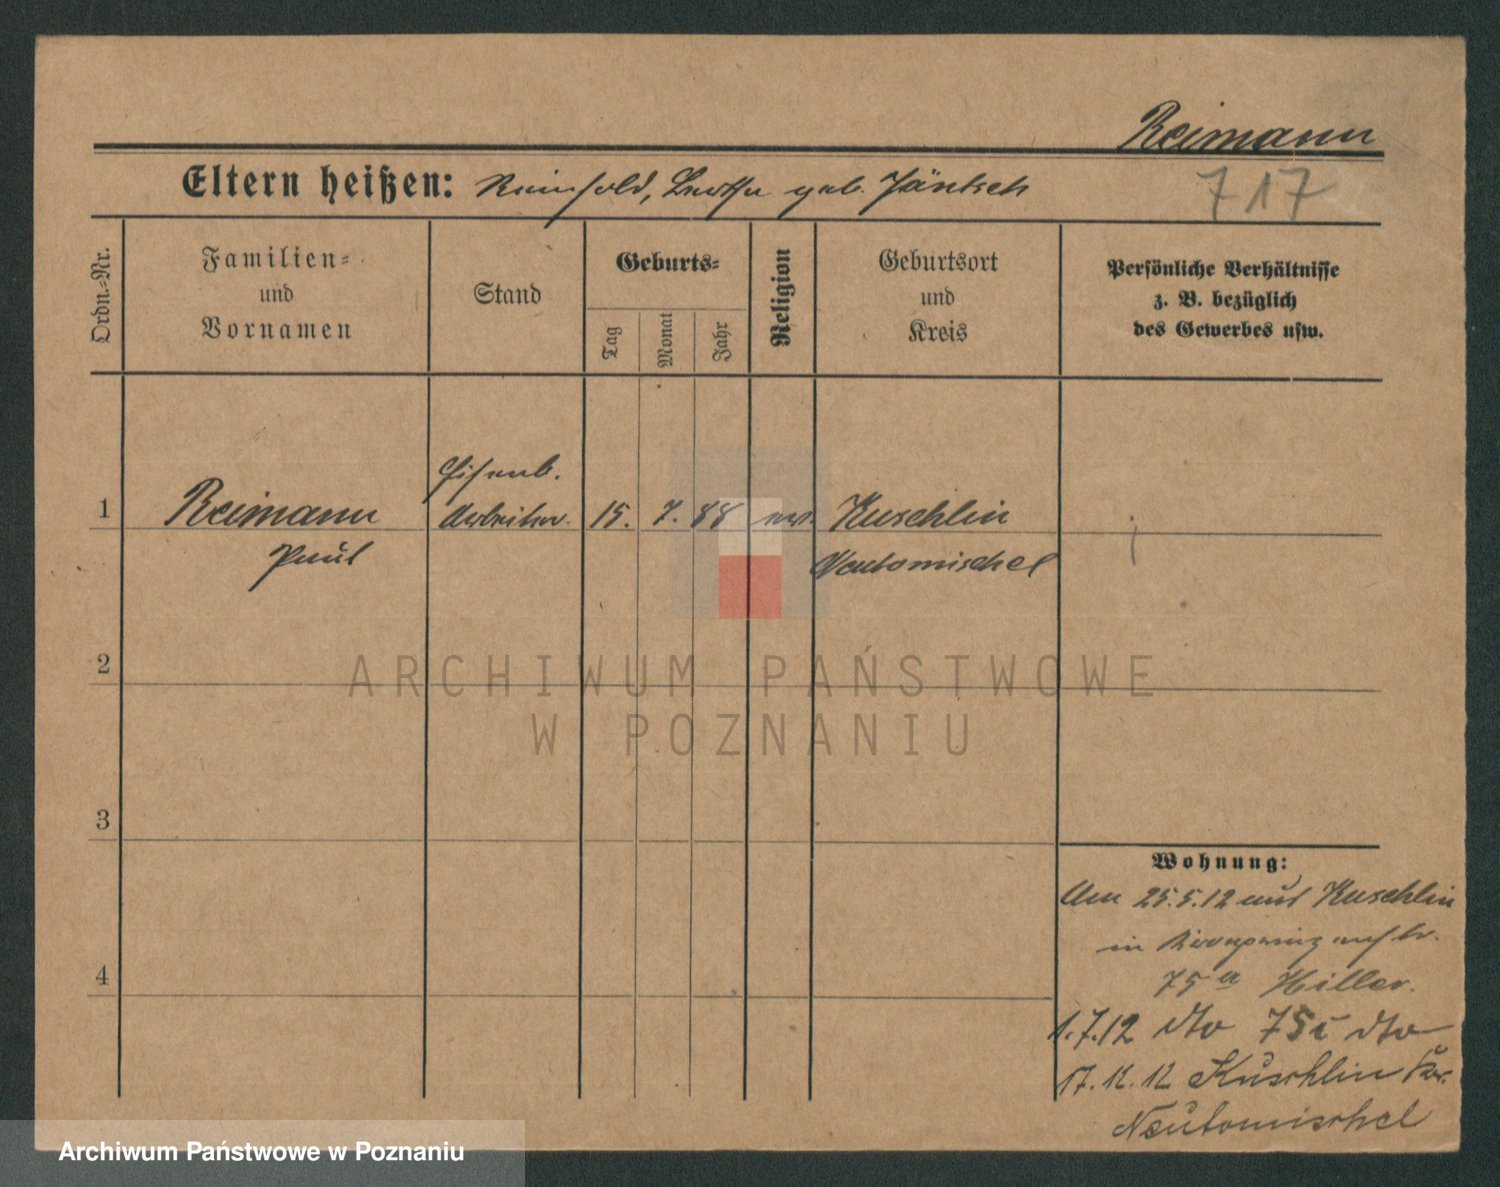 Reimann
717
Eltern heißen: Reinhold, Bertha geb. Jäntsch
Ordn.-Nr.
Familien-
und
Vornamen
Stand
Geburts-
Tag
Monat
Jahr
Religion
Geburtsort
und
Kreis
Persönliche Verhältnisse
z. B. bezüglich
des Gewerbes usw.
Eisenb.
1 Reimann Arbeiter. 15. 7. 88 ev. Kuschlin
Paul Neutomischel
2
ARCHIWUM PAŃSTWOWE
W POZNANIU
3
Wohnung:
Am 25.5.12 aus Kuschlin
in
4
75a Hiller.
1.7.12 dto 75i dto
17.12.12 Kuschlin Kr.
Neutomischel
Archiwum Państwowe w Poznaniu